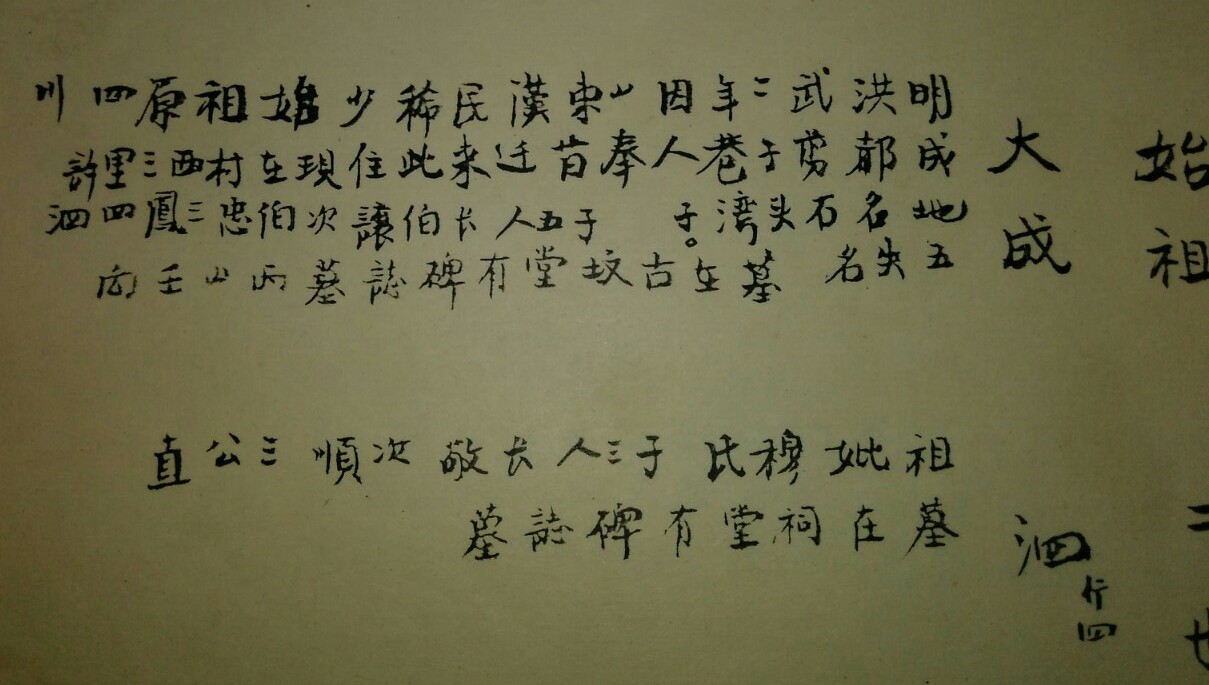 始祖
大成
明洪武二年因山東漢民稀少始祖原四川
成都剪子巷人奉旨迁来此住現在村西三里許
地名石头湾子。 子五人长伯讓次伯忠三鳳四泗
五失名 墓在古坟堂有碑誌墓丙山壬向
二世
泗 行四
祖妣穆氏 子三人长敬次順三公直
墓在祠堂有碑誌墓